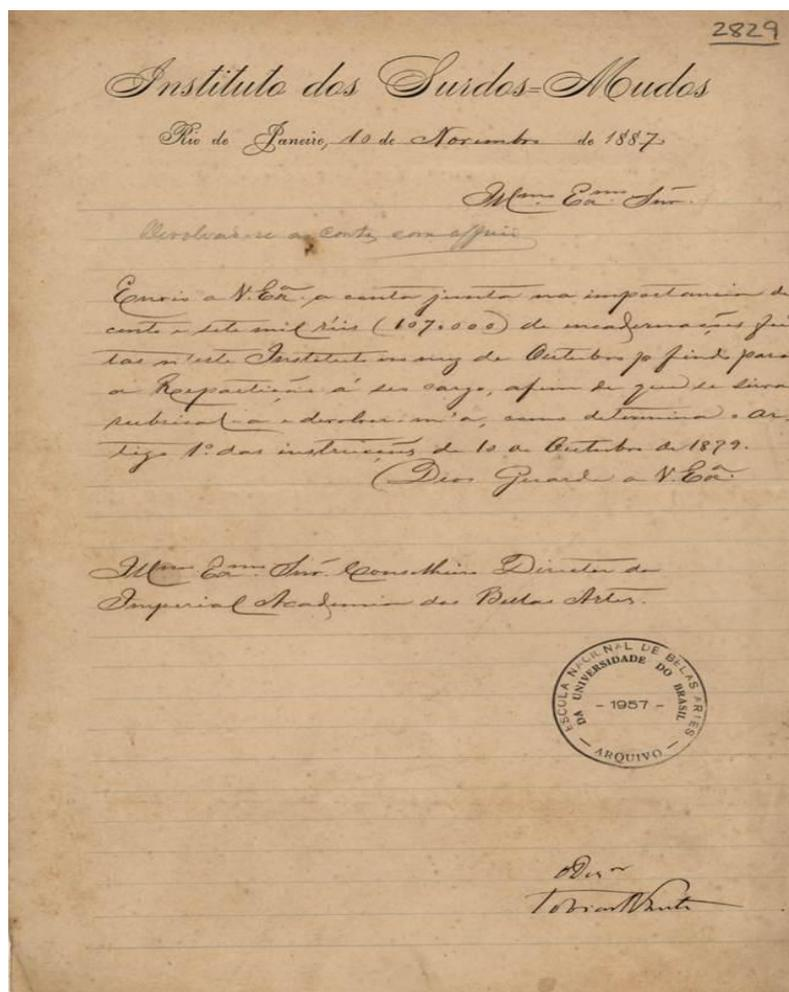 2829
Instituto dos Surdos=Mudos
Rio de Janeiro, 10 de Novembro de 1887
Illmo. Exmo. Snr.
Devolva-se a conta com officio
Envio a V. Exa. a conta junta na importancia de
cento e sete mil réis (107.000) de encadernações fei
tas n'este Instituto no mez de Outubro p. findo para
a Repartição á seu cargo, afim de que se sirva
rubrical-a e devolver-m'a, como determina o ar-
tigo 1º das instrucções de 10 de Outubro de 1879.
Deos Guarde a V. Exa.
Illmo. Exmo. Snr. Conselheiro Director da
Imperial Academia das Bellas Artes.
ESCOLA NACIONAL DE BELAS ARTES
DA UNIVERSIDADE DO BRASIL
- 1957 -
- ARQUIVO -
o Dir.or
Tobias Leite